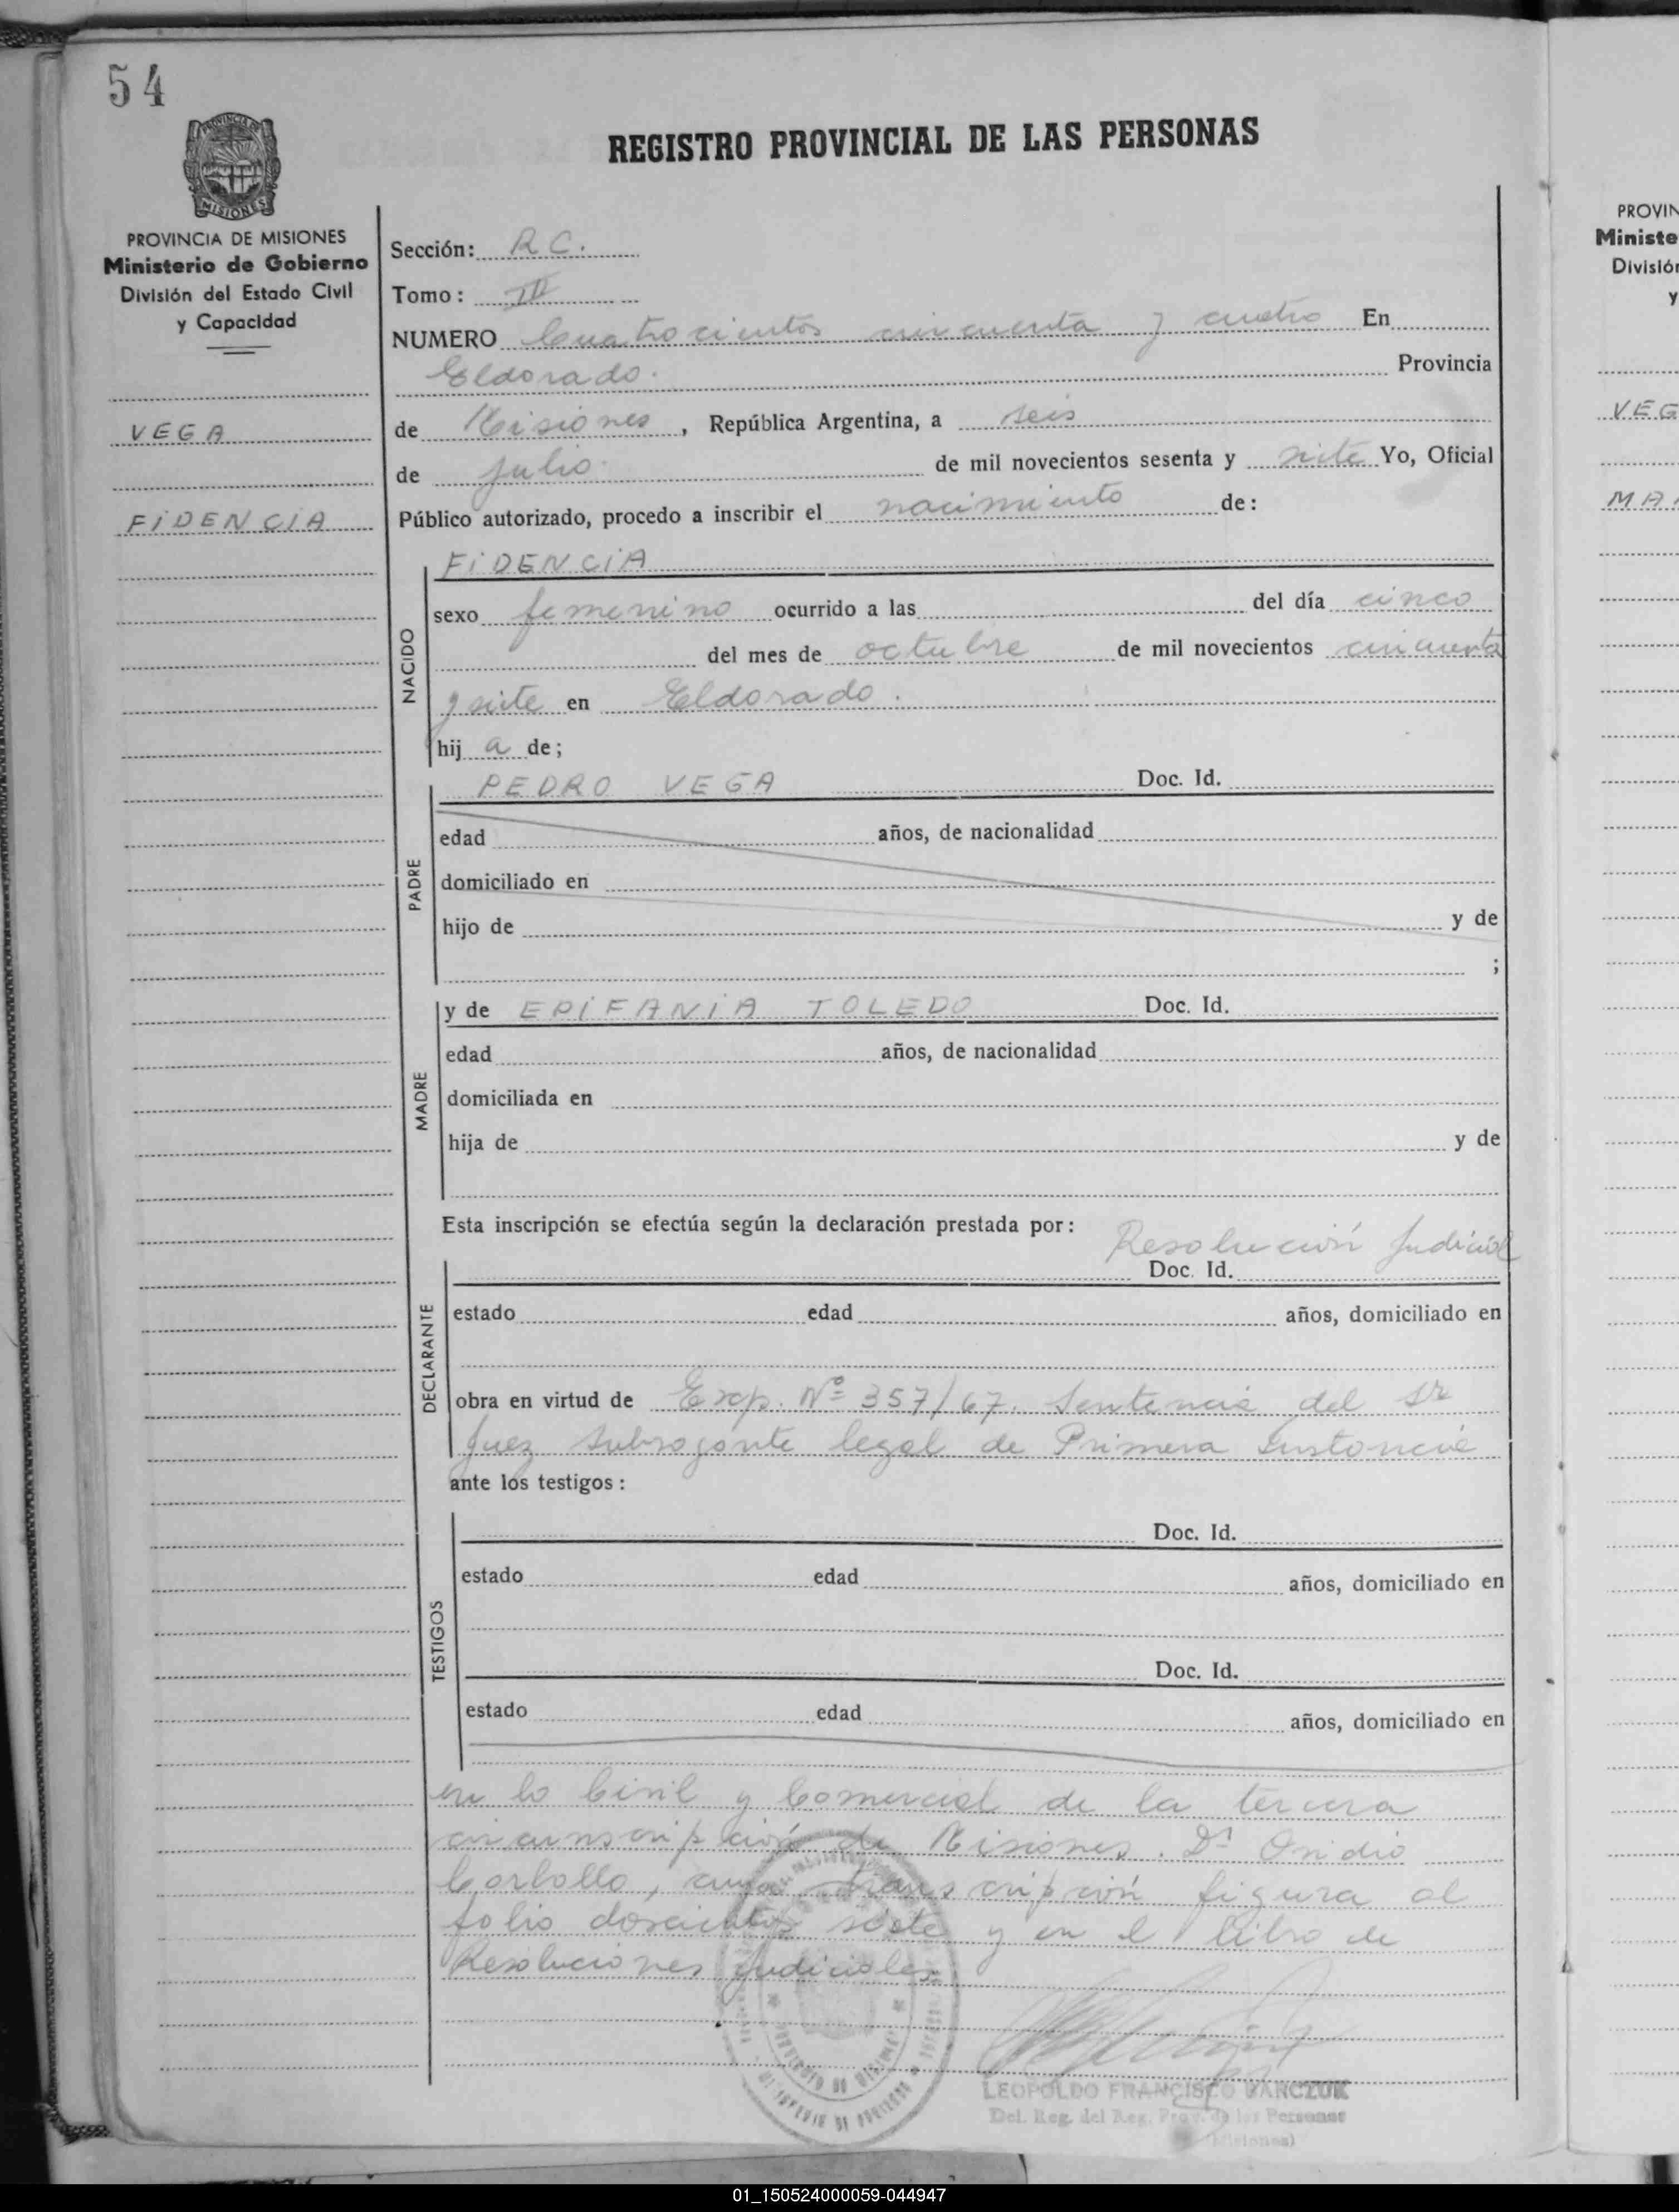 54
REGISTRO PROVINCIAL DE LAS PERSONAS
PROVINCIA DE MISIONES
Ministerio de Gobierno
División del Estado Civil
y Capacidad
VEGA
FIDENCIA
Sección: R C.
Tomo:
NUMERO Cuatrocientos cincuenta y cuatro En
Eldorado. Provincia
de Misiones, República Argentina, a seis
de julio. de mil novecientos sesenta y siete Yo, Oficial
Público autorizado, procedo a inscribir el nacimiento de:
NACIDO
FIDENCIA
sexo femenino ocurrido a las del día cinco
del mes de octubre de mil novecientos cincuenta
y siete en Eldorado.
hij a de;
PADRE
PEDRO VEGA Doc. Id.
edad años, de nacionalidad
domiciliado en
hijo de y de
;
MADRE
y de EPIFANIA TOLEDO Doc. Id.
edad años, de nacionalidad
domiciliada en
hija de y de
Esta inscripción se efectúa según la declaración prestada por:
Resolución Judicial
DECLARANTE
Doc. Id.
estado edad años, domiciliado en
obra en virtud de Exp. Nº 357/67. Sentencia del Sr
Juez Subrogante legal de Primera Instancia
ante los testigos:
TESTIGOS
Doc. Id.
estado edad años, domiciliado en
Doc. Id.
estado edad años, domiciliado en
en lo Civil y Comercial de la tercera
circunscripción de Misiones. Dr Ovidio
Carballo, cuya transcripción figura al
folio doscientos siete y en el libro de
Resoluciones Judiciales
LEOPOLDO FRANCISCO WANCZUK
Del. Reg. del Reg. Prov. de las Personas
(Misiones)
PROVIN
Ministe
División
y
VEG
MA
01_150524000059-044947